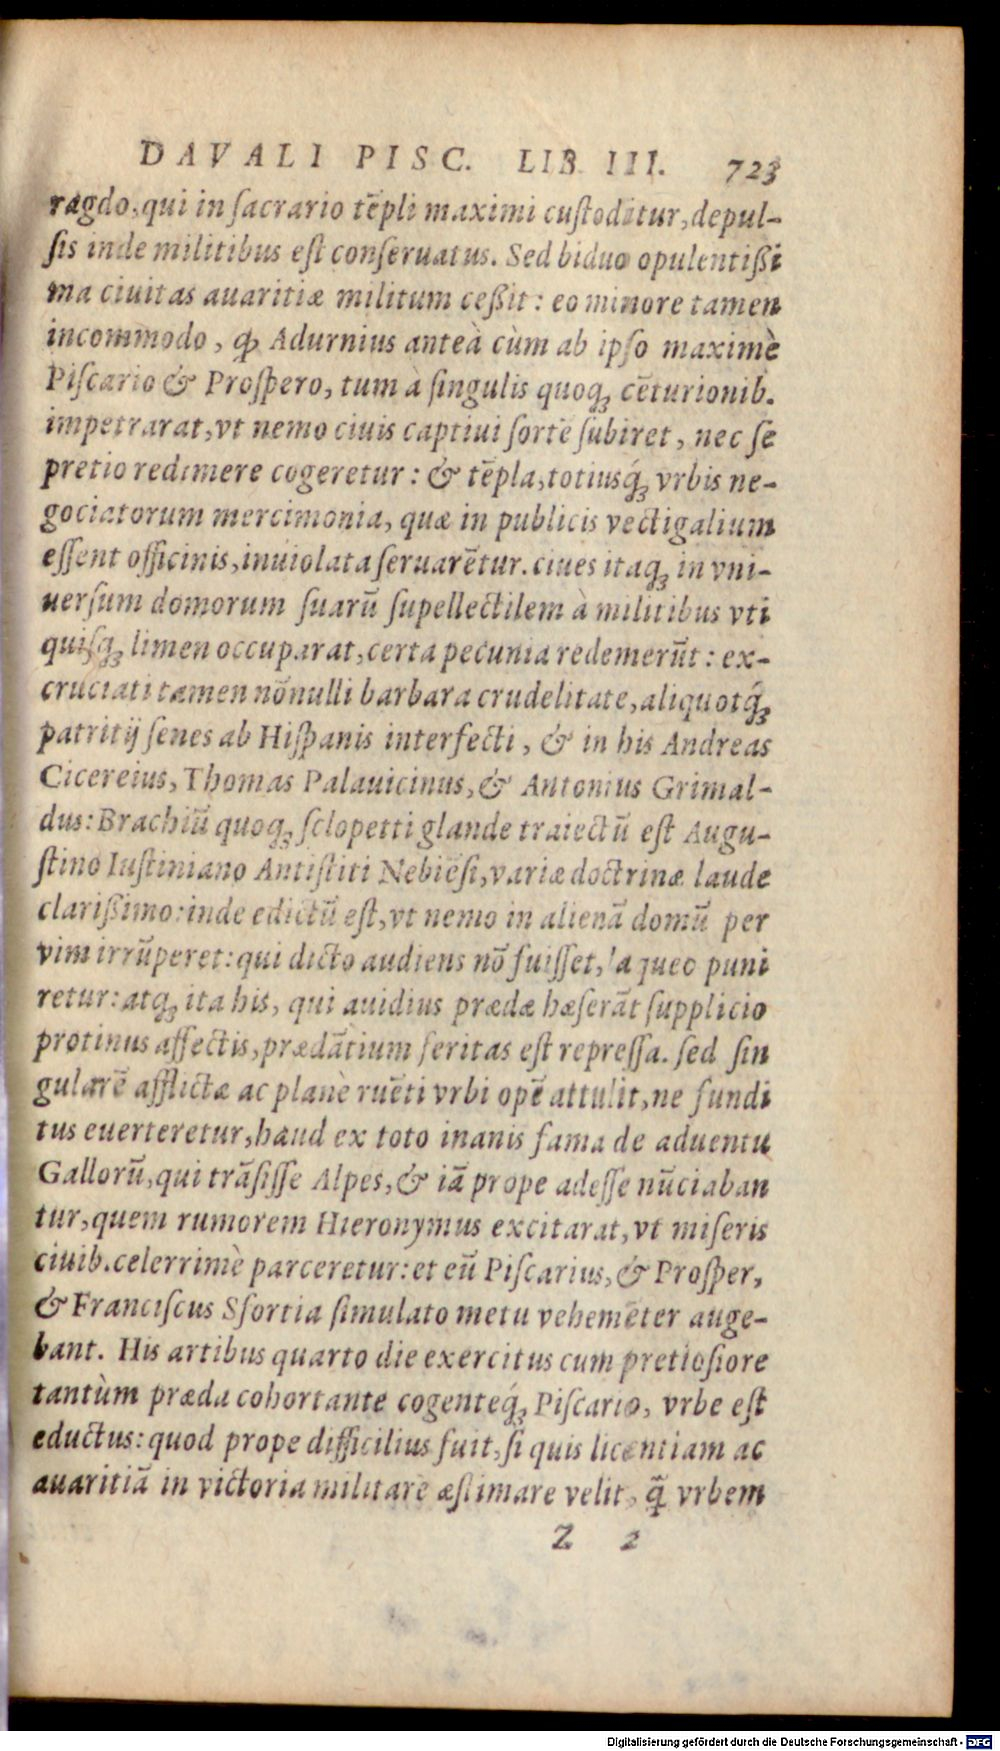 DAVALI PISC. LIB. III. 723
ragdo, qui in ſacrario tēpli maximi cuſtoditur, depul-
ſis inde militibus eſt conſeruatus. Sed biduo opulentißi
ma ciuitas auaritiæ militum ceßit: eo minore tamen
incommodo, ꝙ Adurnius anteà cùm ab ipſo maximè
Piſcario & Proſpero, tum à ſingulis quoqꝫ cēturionib.
impetrarat, vt nemo ciuis captiui ſortē ſubiret, nec ſe
pretio redimere cogeretur: & tēpla, totiusq́ꝫ vrbis ne-
gociatorum mercimonia, quæ in publicis vectigalium
eſſent officinis, inuiolata ſeruarētur. ciues itaqꝫ in vni-
uerſum domorum ſuarū ſupellectilem à militibus vti
quiſqꝫ limen occuparat, certa pecunia redemerūt: ex-
cruciati tamen nōnulli barbara crudelitate, aliquotq́ꝫ
patritij ſenes ab Hiſpanis interfecti, & in his Andreas
Cicereius, Thomas Palauicinus, & Antonius Grimal-
dus: Brachiū quoqꝫ ſclopetti glande traiectū eſt Augu-
ſtino Iuſtiniano Antiſtiti Nebiēſi, variæ doctrinæ laude
clarißimo: inde edictū eſt, vt nemo in alienā domū per
vim irrūperet: qui dicto audiens nō fuiſſet, laqueo puni
retur: atqꝫ ita his, qui auidius prædæ hæſerāt ſupplicio
protinus affectis, prædātium feritas eſt repreſſa. ſed ſin
gularē afflictæ ac planè ruēti vrbi opē attulit, ne fundi
tus euerteretur, haud ex toto inanis fama de aduentu
Gallorū, qui trāſiſſe Alpes, & iā prope adeſſe nūciaban
tur, quem rumorem Hieronymus excitarat, vt miſeris
ciuib. celerrimè parceretur: et eū Piſcarius, & Proſper,
& Franciſcus Sfortia ſimulato metu vehemēter auge-
bant. His artibus quarto die exercitus cum pretioſiore
tantùm præda cohortante cogenteq́ꝫ Piſcario, vrbe eſt
eductus: quod prope difficilius fuit, ſi quis licentiam ac
auaritiā in victoria militarē æſtimare velit, q̄ vrbem
Z 2
Digitalisierung gefördert durch die Deutsche Forschungsgemeinschaft - DFG